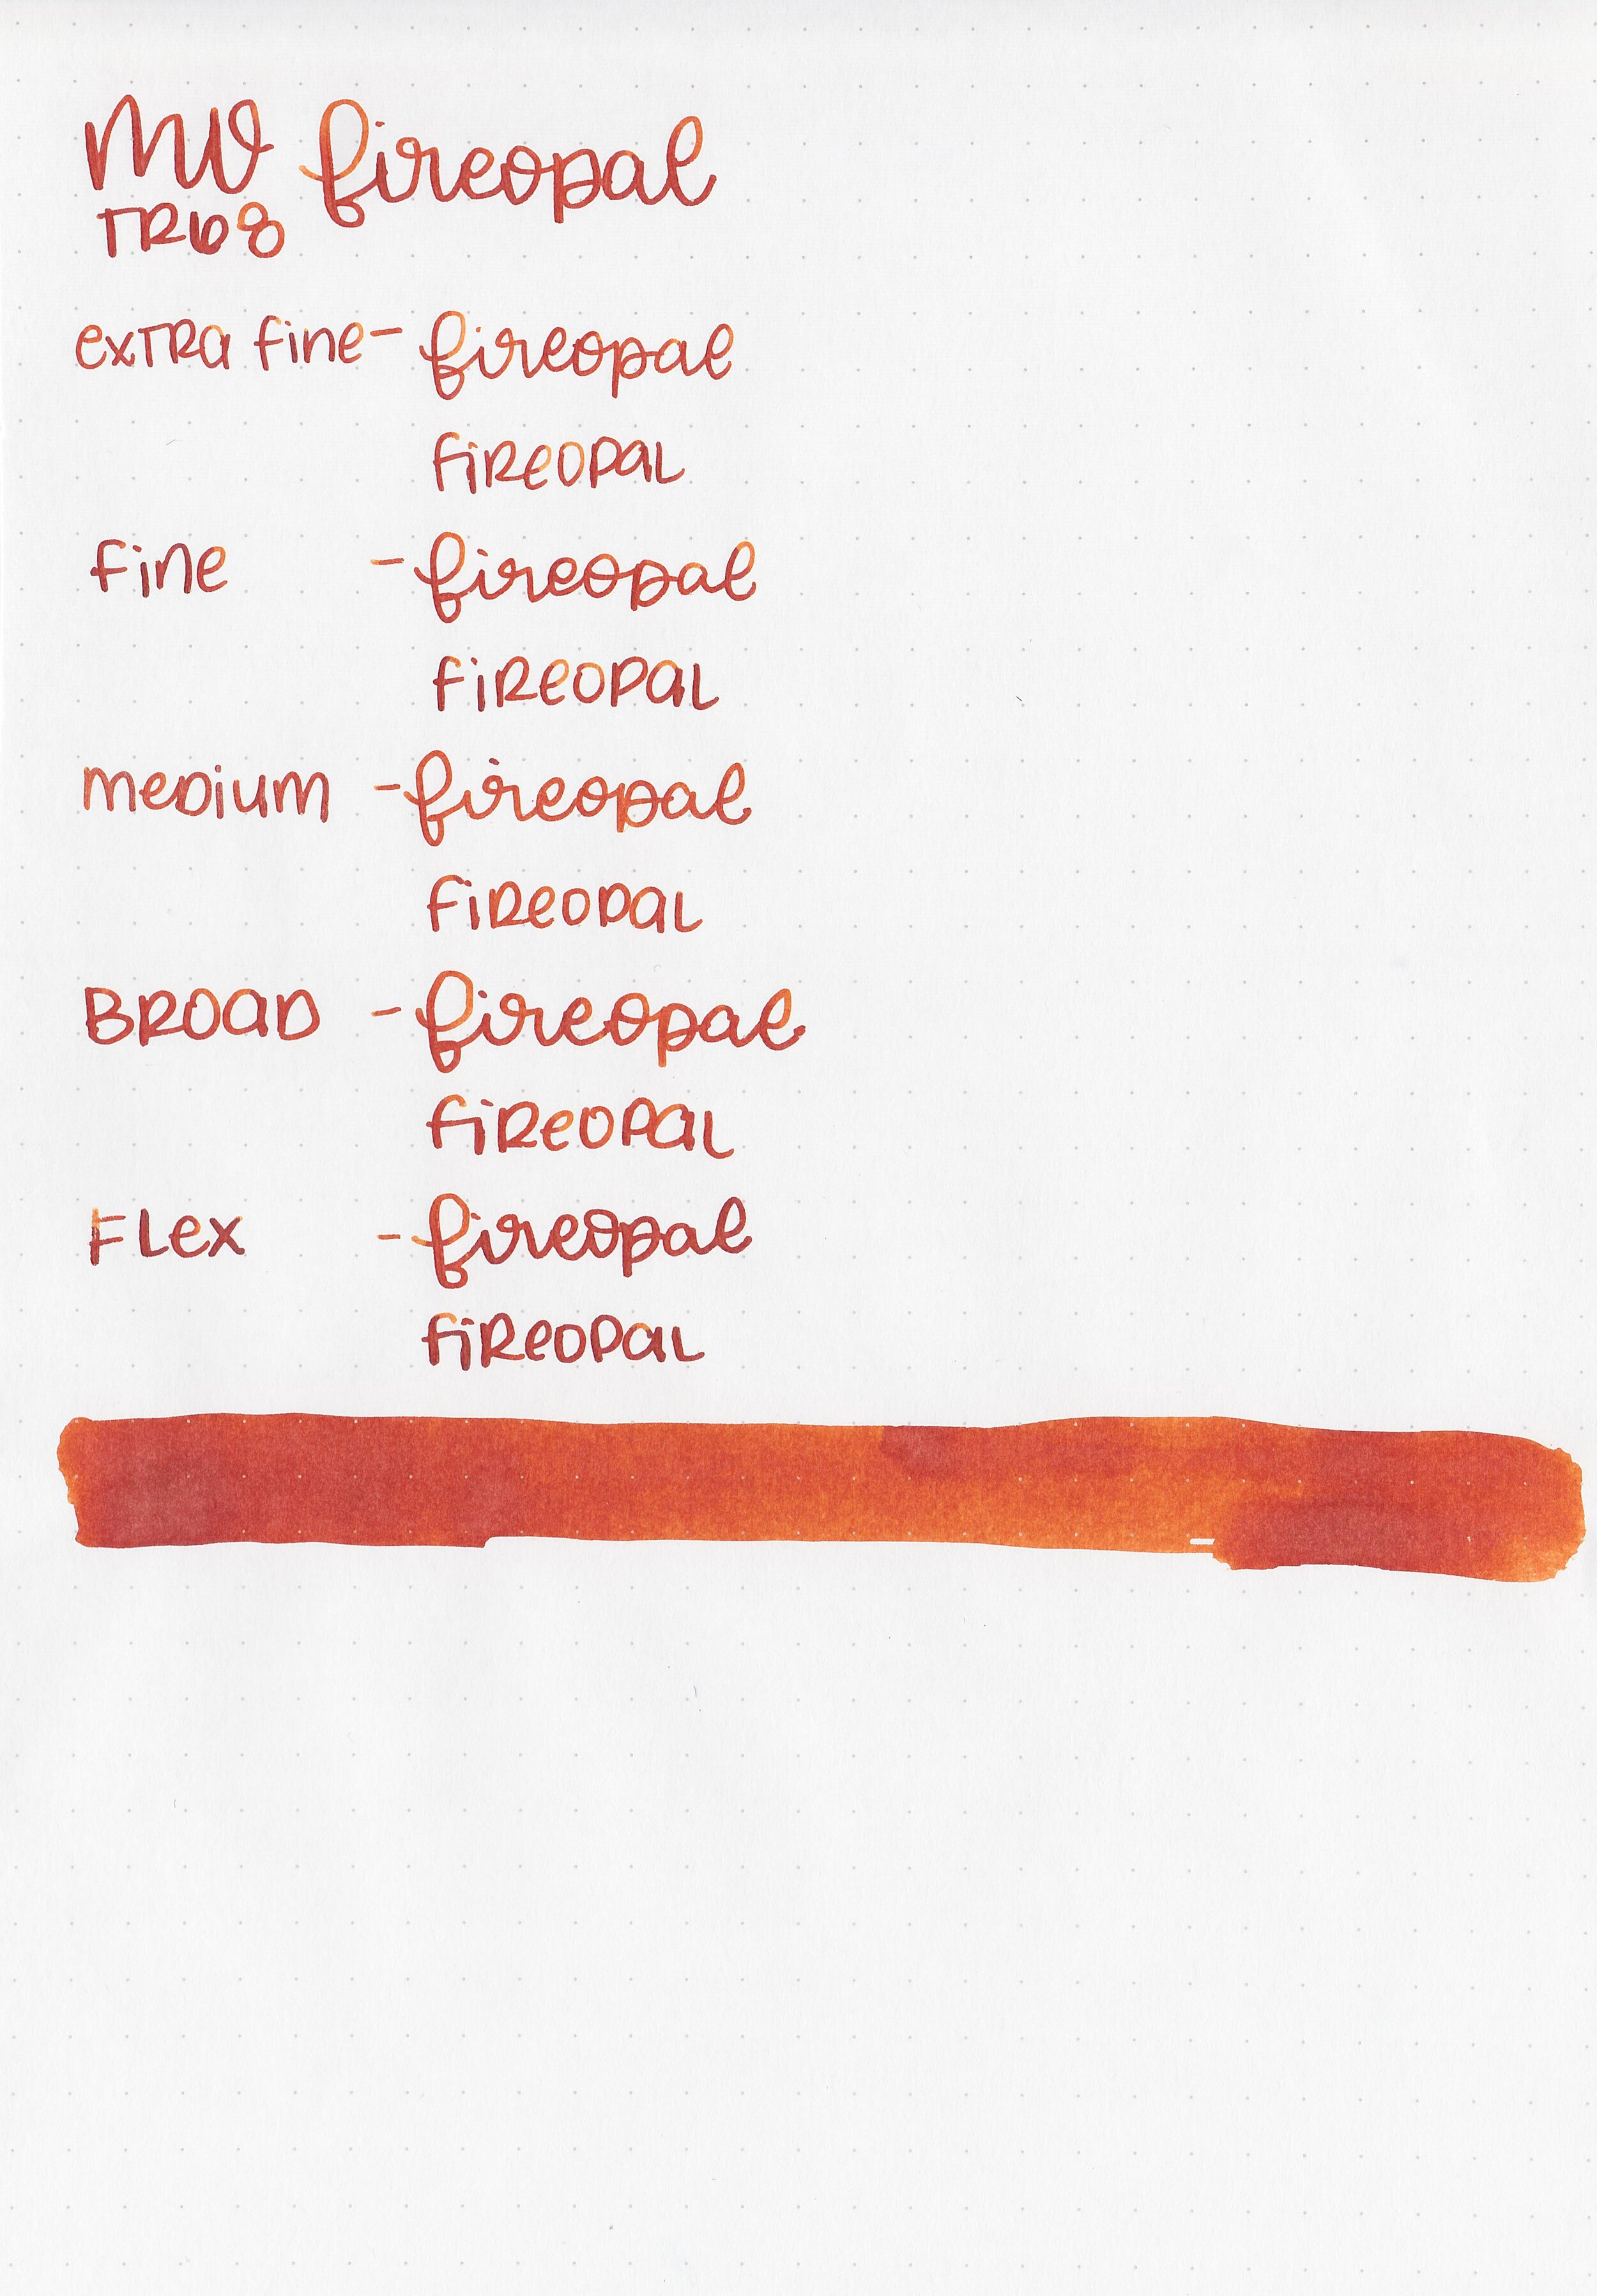 MV fireopal
TR68
extra fine - fireopal
fireopal
fine - fireopal
fireopal
medium - fireopal
fireopal
BROAD - fireopal
fireopal
FLex - fireopal
fireopal